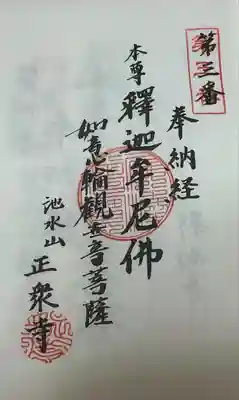 第三番
奉納経
本尊 釋迦牟尼佛
如意輪観世音菩薩
池水山 正衆寺